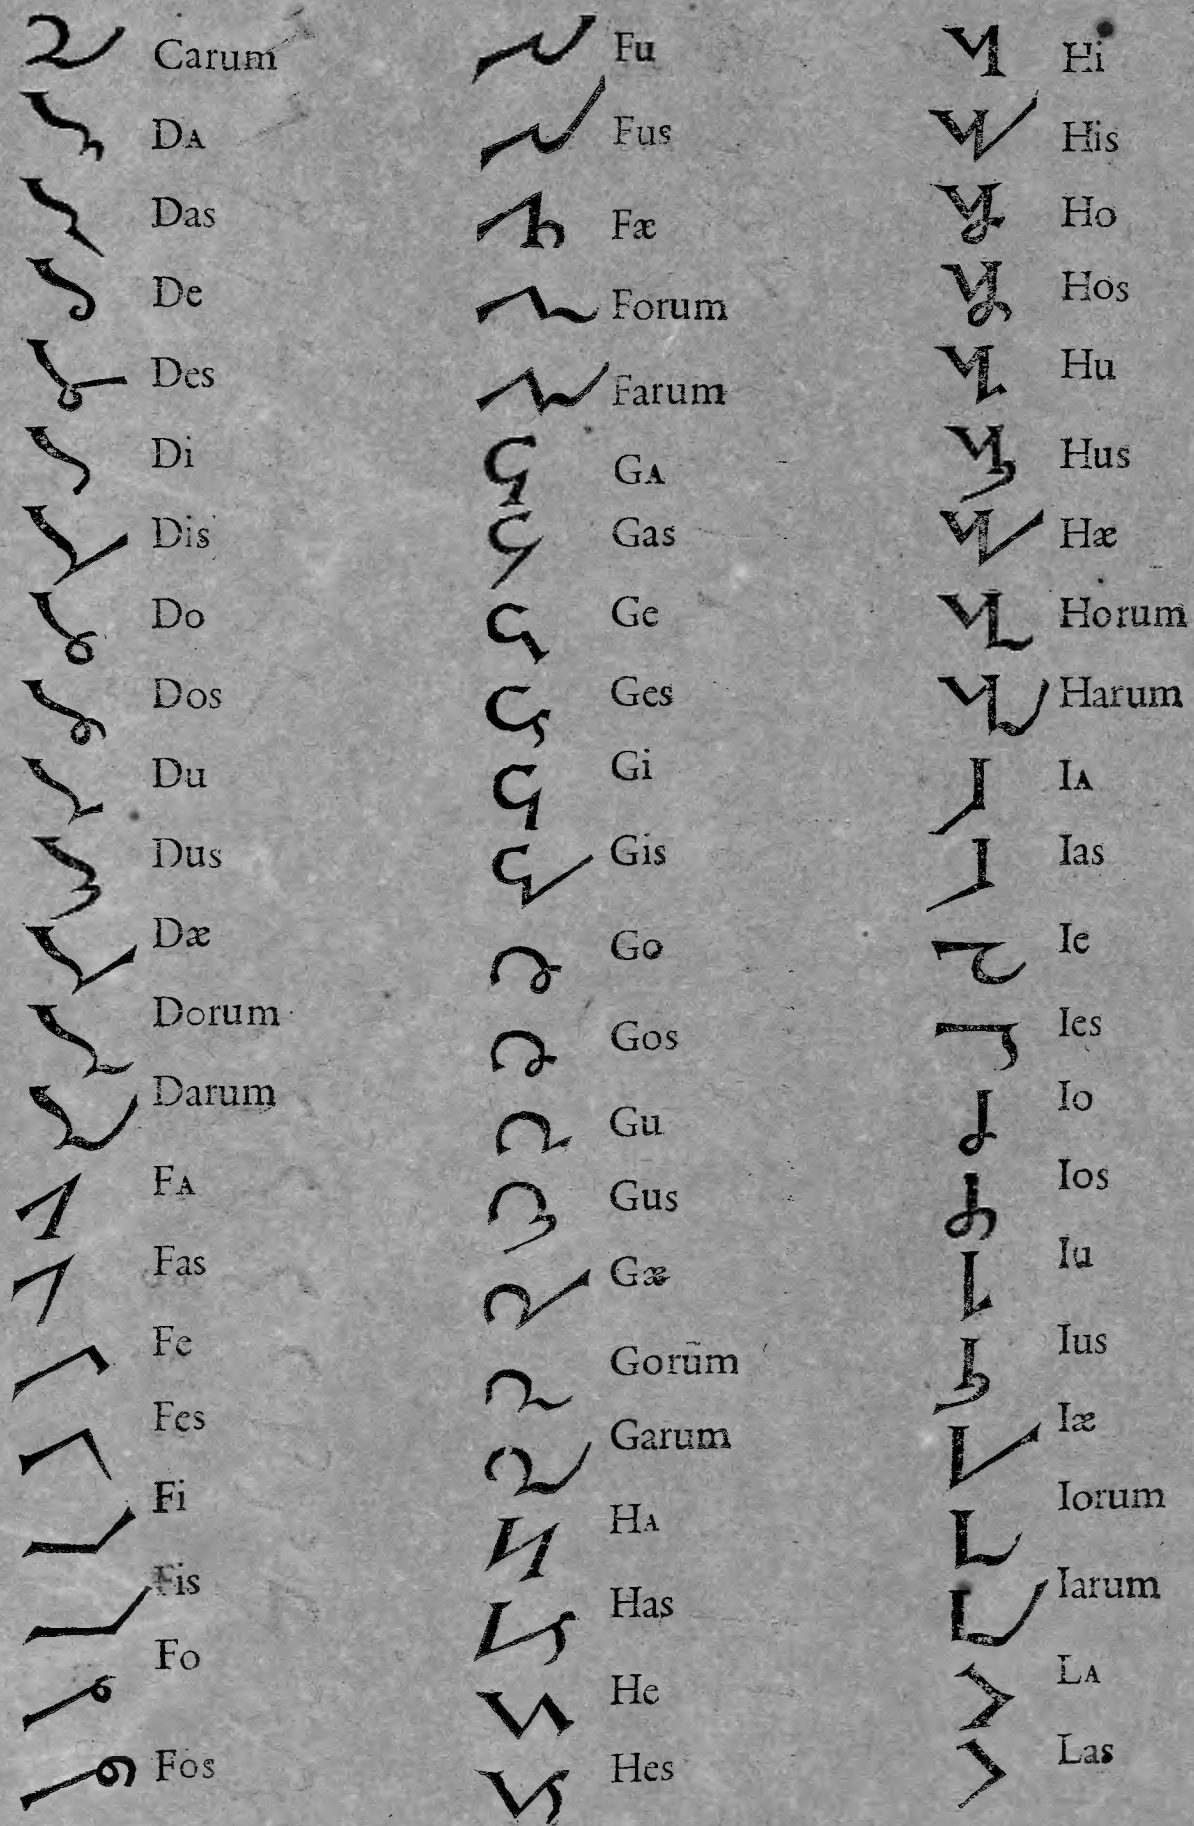 Carum
DA
Das
De
Des
Di
Dis
Do
Dos
Du
Dus
Dæ
Dorum
Darum
FA
Fas
Fe
Fes
Fi
Fis
Fo
Fos
Fu
Fus
Fæ
Forum
Farum
GA
Gas
Ge
Ges
Gi
Gis
Go
Gos
Gu
Gus
Gæ
Gorum
Garum
HA
Has
He
Hes
Hi
His
Ho
Hos
Hu
Hus
Hæ
Horum
Harum
IA
Ias
Ie
Ies
Io
Ios
Iu
Ius
Iæ
Iorum
Iarum
LA
Las